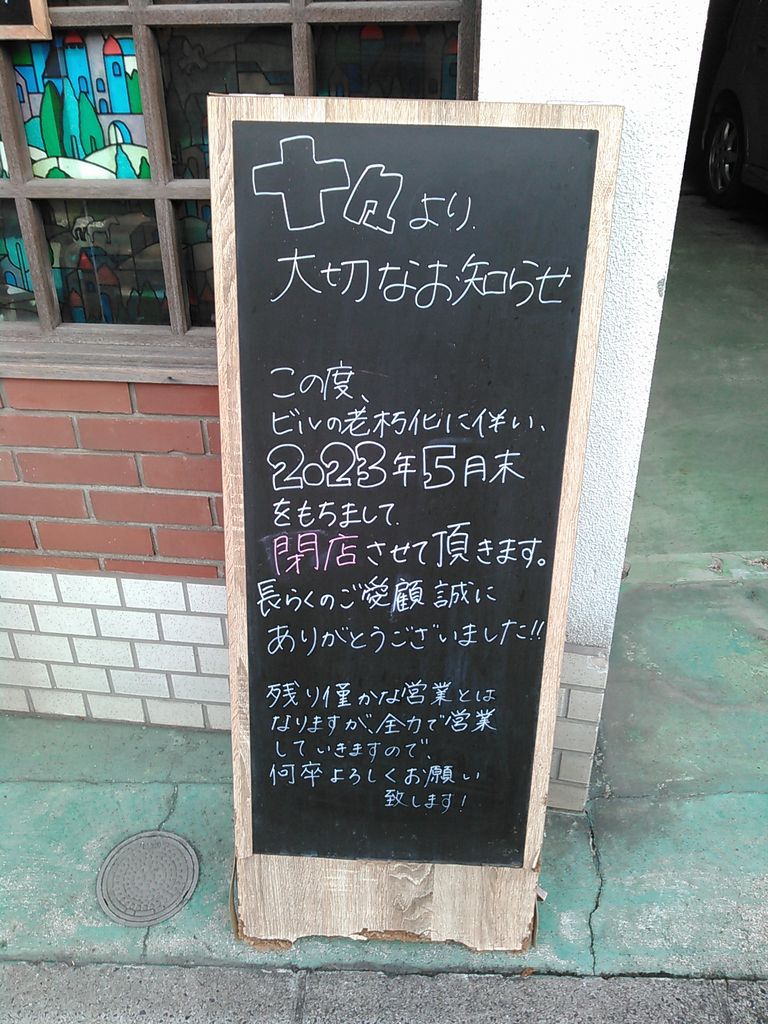 十々より
大切なお知らせ
この度、
ビルの老朽化に伴い、
2023年5月末
をもちまして
閉店させて頂きます。
長らくのご愛顧誠に
ありがとうございました!!
残り僅かな営業とは
なりますが、全力で営業
していきますので、
何卒よろしくお願い
致します!